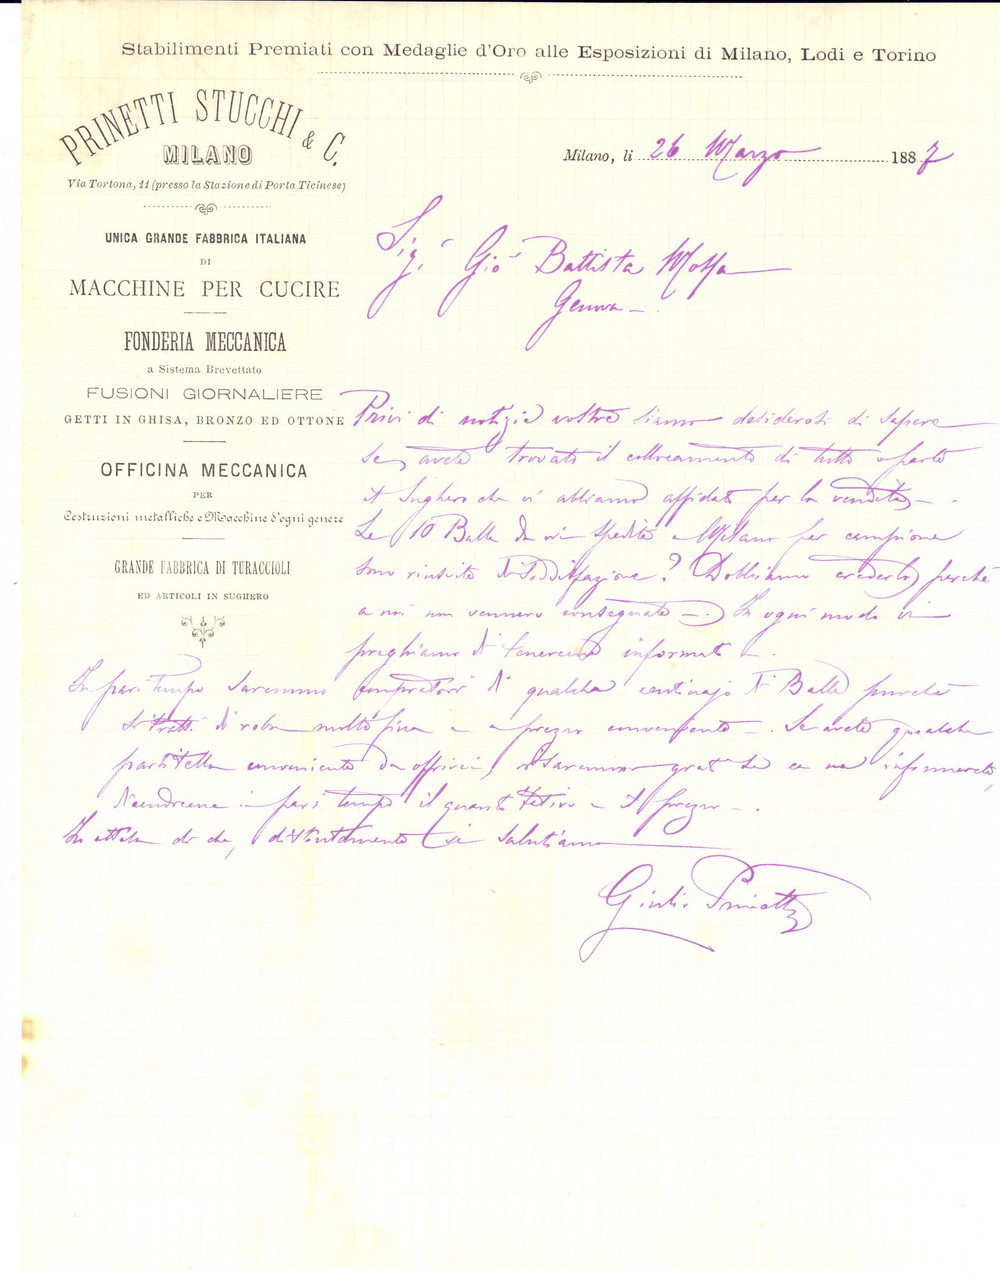 Stabilimenti Premiati con Medaglie d'Oro alle Esposizioni di Milano, Lodi e Torino
PRINETTI STUCCHI & C.
MILANO
Via Tortona, 11 (presso la Stazione di Porta Ticinese)
UNICA GRANDE FABBRICA ITALIANA
DI
MACCHINE PER CUCIRE
FONDERIA MECCANICA
a Sistema Brevettato
FUSIONI GIORNALIERE
GETTI IN GHISA, BRONZO ED OTTONE
OFFICINA MECCANICA
PER
Costruzioni metalliche e Macchine d'ogni genere
GRANDE FABBRICA DI TURACCIOLI
ED ARTICOLI IN SUGHERO
Milano, li 26 Marzo 1887
Sig. Gio Battista
Genova
Privi di notizie vostre siamo desiderosi di sapere
se avete trovato il collocamento di tutto o parte
Sughero che vi abbiamo affidato per la vendita
Le 10 Balle da voi spedite a Milano per campione
sono riuscite di soddisfazione? Dobbiamo crederlo perchè
a noi non vennero consegnate. In ogni modo vi
preghiamo di tenercene informati.
In pari tempo saremmo compratori di qualche centinajo di Balle purchè
si tratti di roba molto fina e a prezzo conveniente. Se avete qualche
partitella conveniente da offrirci, saremmo grati se ce ne informerete,
in pari tempo il quantitativo e il prezzo.
In attesa di che, distintamente vi salutiamo
Giulio Prinetti